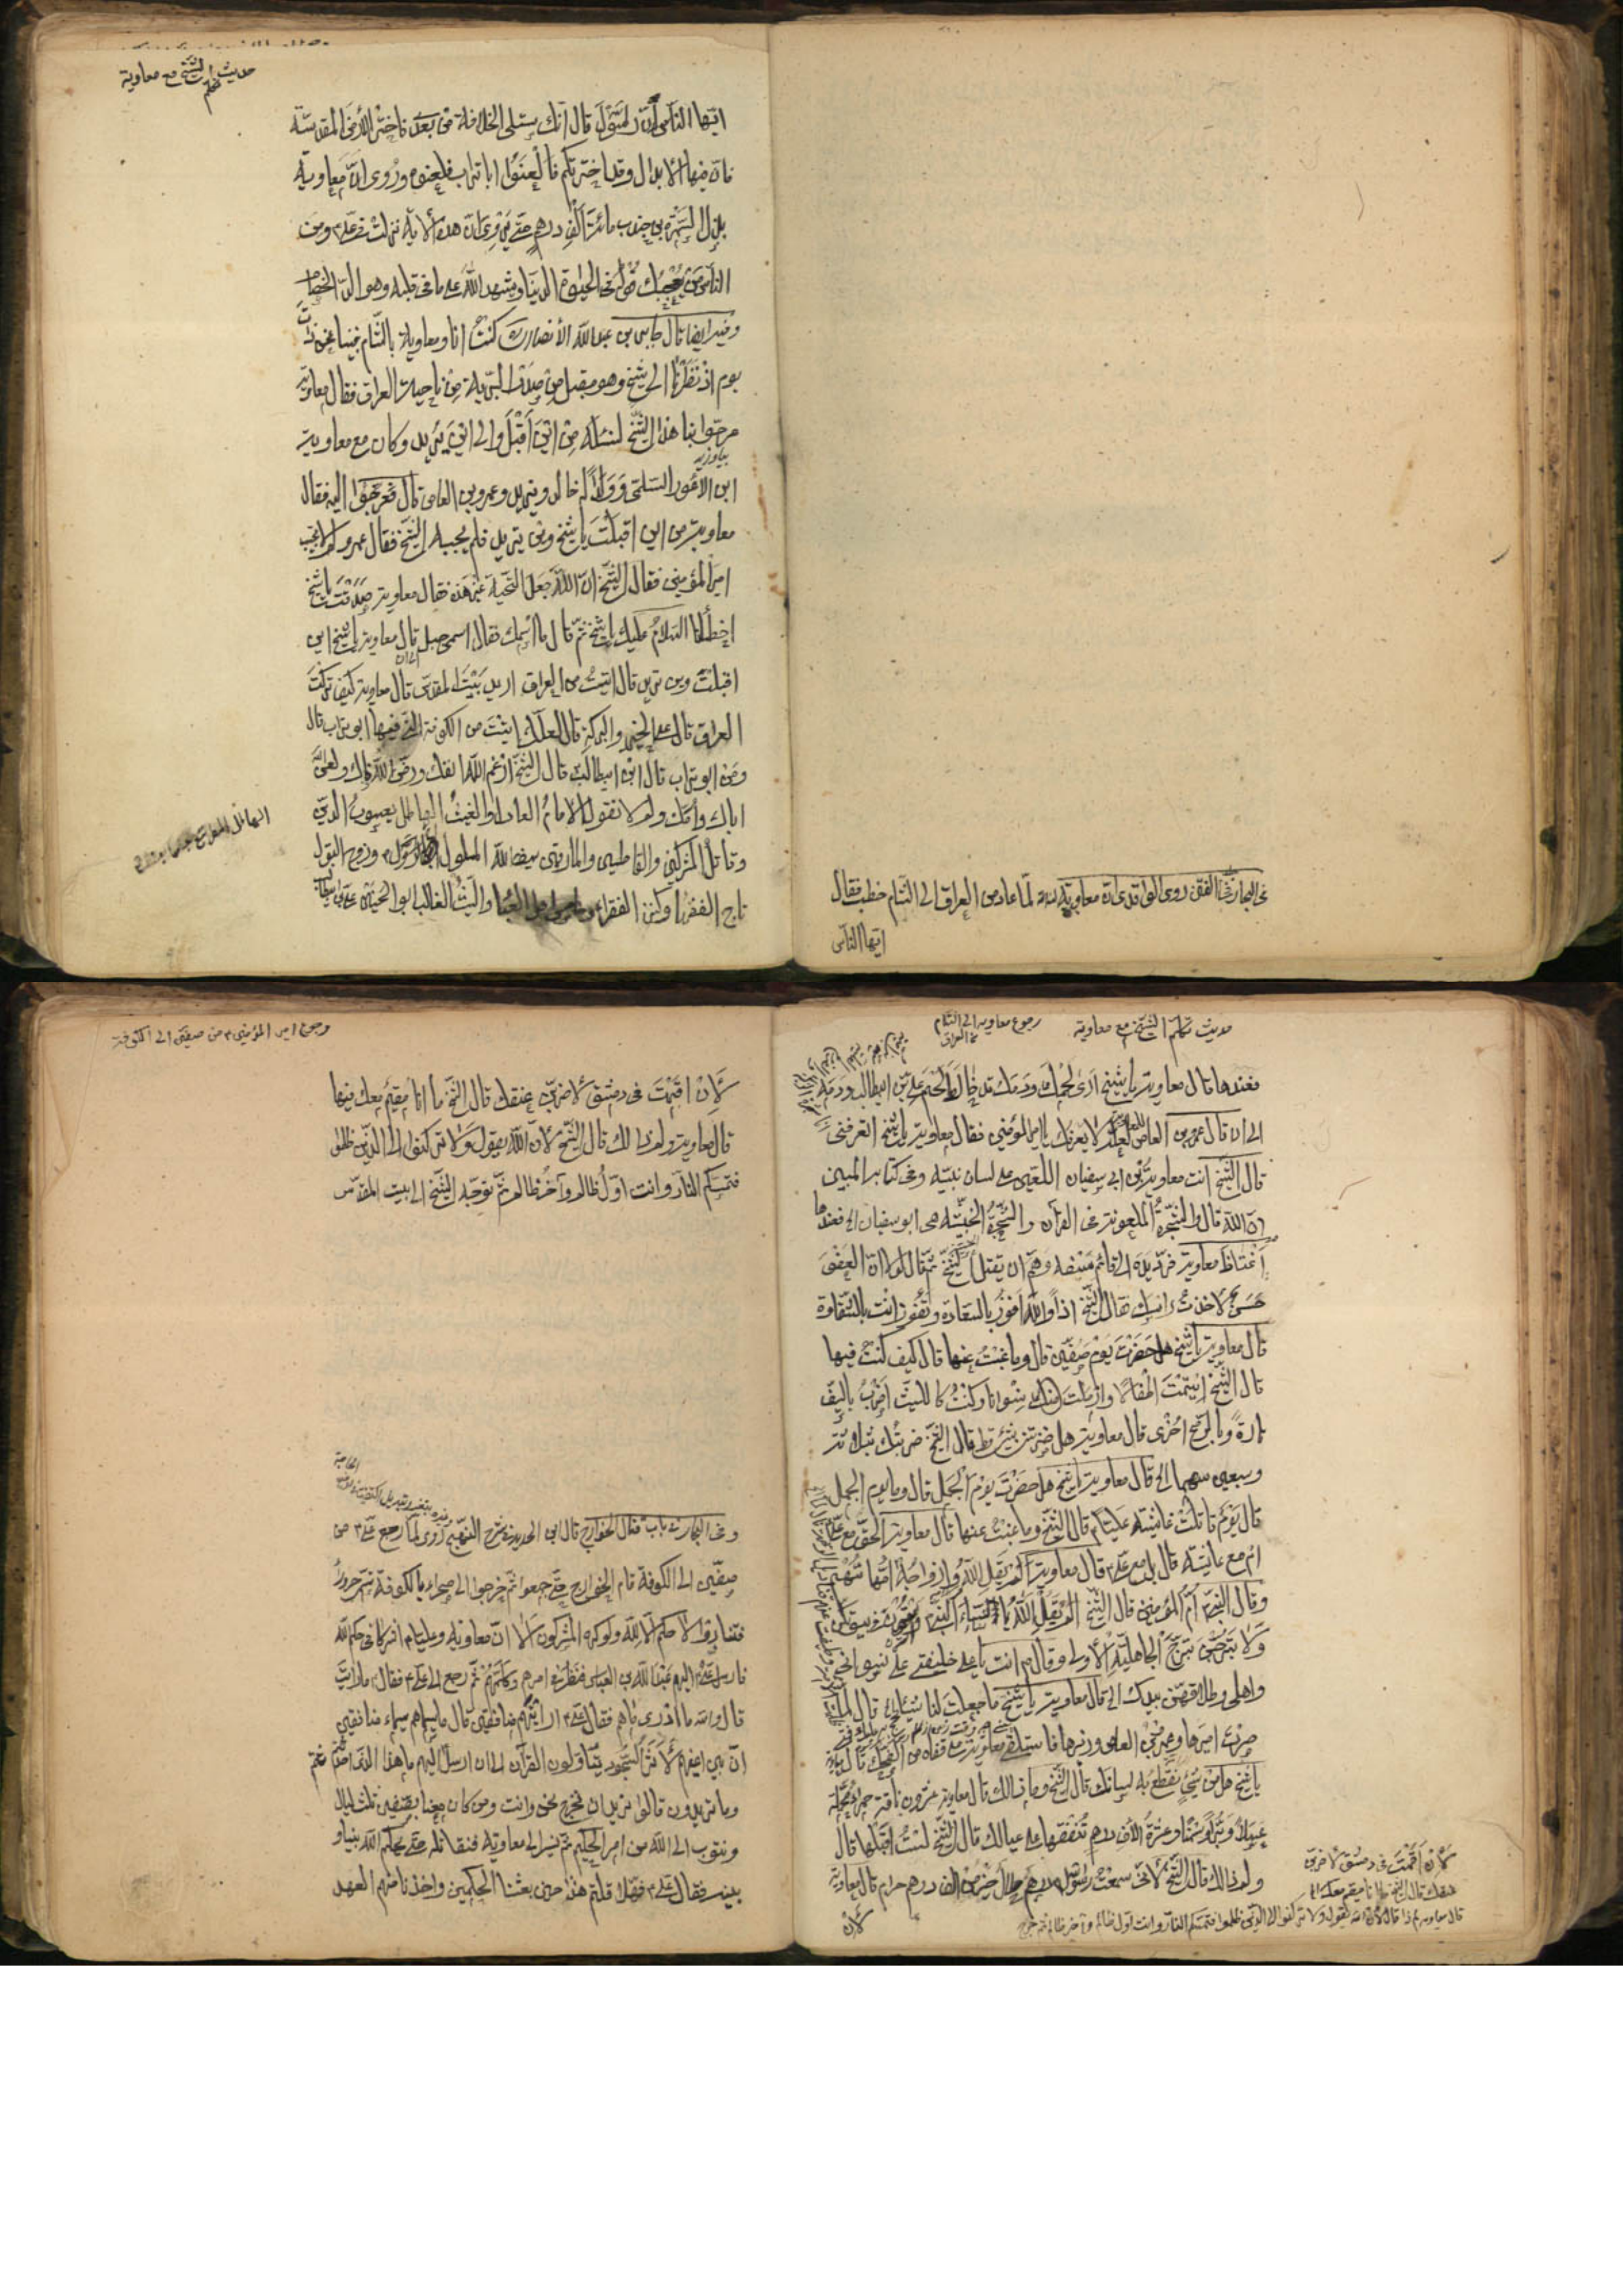 في البحار في الفتن روى الواقدي ان معاوية لما عاد من العراق الى الشام خطب فقال
ايها الناس
حديث تكلم الشيخ مع معاوية
ايها الناس ان رسول قال انك ستلي الخلافة من بعدي فاختر الأرض المقدسة
فان فيها الابدال وقد اخترتكم فالعنوا ابا تراب فلعنوه وروى ان معاوية
بذل لسمرة بن جندب مائة الف درهم حتى يروى ان هذه الآية نزلت في علي ومن
الناس من يعجبك قوله في الحيوة الدنيا ويشهد الله على ما في قلبه وهو الد الخصام
وفيه ايضا قال جابر بن عبد الله الأنصاري كنت انا ومعاوية بالشام فبينا نحن ذات
يوم اذ نظرنا الى شيخ وهو مقبل من صدر البرية من ناحية العراق فقال معاوية
عرجوا بنا هذا الشيخ لنسئله من اين اقبل والى اين يريد وكان مع معاوية
ابو الاعور السلمي وولدا له خالد ويزيد وعمرو بن العاص قال فعرجوا اليه فقال
معاوية من اين اقبلت يا شيخ واين تريد فلم يجبه الشيخ فقال عمرو لم لا تجيب
امير المؤمنين فقال الشيخ ان الله جعل التحية غير هذه فقال معاوية صدقت يا شيخ
اخطأنا السلام عليك يا شيخ ثم قال ما اسمك فقال اسمي جبل قال معاوية يا شيخ اين
اقبلت واين تريد قال اتيت من العراق اريد بيت المقدس قال معاوية كيف تركت
العراق قال على الخير والبركة قال لعلك اتيت من الكوفة التي فيها ابو تراب قال
ومن ابو تراب قال ابن ابيطالب قال الشيخ ارغم الله انفك ورض الله فاك ولعن الله
اباك وامك ولم لا تقول الامام العادل والغيث الهاطل يعسوب الدين
وقاتل المشركين والقاسطين والمارقين سيف الله المسلول ابن عم الرسول وزوج البتول
تاج الفقهاء وكنز الفقراء وخامس اهل العبا والليث الغالب ابو الحسنين علي بن ابيطالب
حديث تكلم الشيخ مع معاوية
رجوع معاوية الى الشام
من العراق
فعندها قال معاوية يا شيخ ارى لحمك ودمك قد خالط لحم علي بن ابيطالب ودمه
الى ان قال عمرو بن العاص لعله لا يعرفك يا امير المؤمنين فقال معاوية يا شيخ اتعرفني
قال الشيخ انت معاوية بن ابي سفيان اللعين على لسان نبيه وفي كتابه المبين
ان الله قال والشجرة الملعونة في القرآن والشجرة الخبيثة هي ابو سفيان الخ فعندها
اغتاظ معاوية فرد يده الى قائم سيفه وهم ان يقتل الشيخ ثم قال لولا ان العفو
حسن لاخذت راسك فقال الشيخ اذا والله افوز بالسعادة وتفوز انت بالشقاوة
قال معاوية يا شيخ هل حضرت يوم صفين قال وما غبت عنها قال كيف كنت فيها
قال الشيخ ايتمت اطفالا وارملت منك نسوانا وكنت كالليث اضرب بالسيف
تارة وبالرمح اخرى قال معاوية هل ضربتني بشيء قط قال الشيخ ضربتك بثلاثة
وسبعين سهما الخ قال معاوية يا شيخ هل حضرت يوم الجمل قال وما يوم الجمل
قال يوم قاتلت عائشة عليا قال الشيخ وما غبت عنها قال معاوية الحق مع علي
ام مع عائشة قال بل مع علي قال معاوية الم يقل الله وازواجه امهاتهم
وقال النبي ام المؤمنين قال الشيخ الم يقل الله يا نساء النبي وقرن في بيوتكن
ولا تبرجن تبرج الجاهلية الأولى وقال انت يا علي خليفتي على نسواني
واهلي وطلاقهن بيدك الخ قال معاوية يا شيخ ما جعلت لنا
صرت اميرها وعمرو بن العاص وزيرها فاستلقى معاوية على قفاه من الضحك قال
يا شيخ هل من شيء نقطع به لسانك قال الشيخ وما ذالك قال معاوية عشرون ناقة حمراء محملة
عسلا وبرا وسمنا وعشرة الاف درهم تنفقها على عيالك قال الشيخ لست اقبلها قال
ولم ذالك قال الشيخ لاني سمعت رسول الله درهم حلال خير من الف درهم حرام قال معاوية
لان
لان اقمت في دمشق لاضربن
عنقك قال الشيخ ما انا مقيم معك الخ
قال معاوية لم ذا قال لان الله يقول ولا تركنوا الى الذين ظلموا فتمسكم النار وانت اول ظالم وآخر ظالم ثم خرج
رجوع امير المؤمنين من صفين الى الكوفة
لان اقمت في دمشق لاضربن عنقك قال الشيخ ما انا مقيم معك فيها
قال معاوية ولم ذالك قال الشيخ لان الله يقول ولا تركنوا الى الذين ظلموا
فتمسكم النار وانت اول ظالم وآخر ظالم ثم توجه الشيخ الى بيت المقدس
وفي البحار في باب قتال الخوارج قال ابن ابي الحديد في شرح النهج روى لما رجع علي من
صفين الى الكوفة قام الخوارج حتى جمعوا ثم خرجوا الى صحراء بالكوفة تسمى حروراء
فتنادوا لا حكم الا لله ولو كره المشركون الا ان معاوية وعليا اشركا في حكم الله
فارسل علي اليهم عبد الله بن العباس فنظر في امرهم وكلمهم ثم رجع الى علي فقال ما رايت
قال والله ما ادري ما هم فقال علي ارايتهم منافقين قال ما سيماهم سيماء منافقين
ان بين اعينهم لاثر السجود يتأولون القرآن الى ان ارسل اليهم ما هذا الذي احدثتم
وما تريدون قالوا نريد ان نخرج نحن وانت ومن كان معنا بصفين ثلث ليال
ونتوب الى الله من امر الحكمين ثم نسير الى معاوية فنقاتله حتى يحكم الله بيننا و
بينه فقال علي فهلا قلتم هذا حين بعثنا الحكمين واخذنا منهم العهد